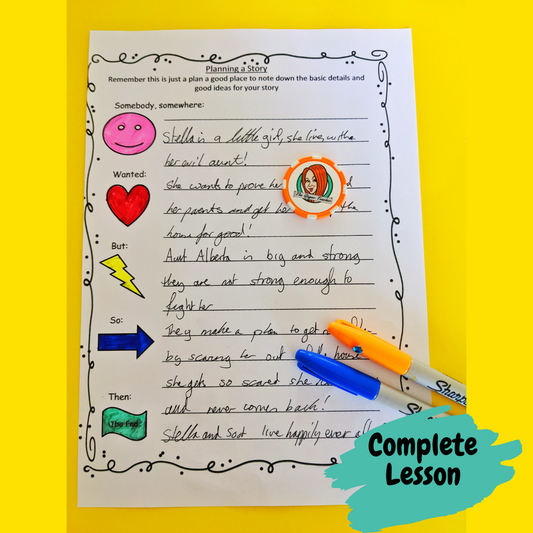 Planning a Story
Remember this is just a plan a good place to note down the basic details and
good ideas for your story
Somebody, somewhere:
Stella is a little girl, she lives with a
her evil aunt!
Wanted:
She wants to prove her
her parents and get her the
home for good!
But:
Aunt Alberta is big and strong
they are not strong enough to
fight her
So:
They make a plan to get
by scaring her out house
she gets so scared she
and never comes back!
Then:
The End
Stella and Soot live happily ever
Sharpie
Complete
Lesson